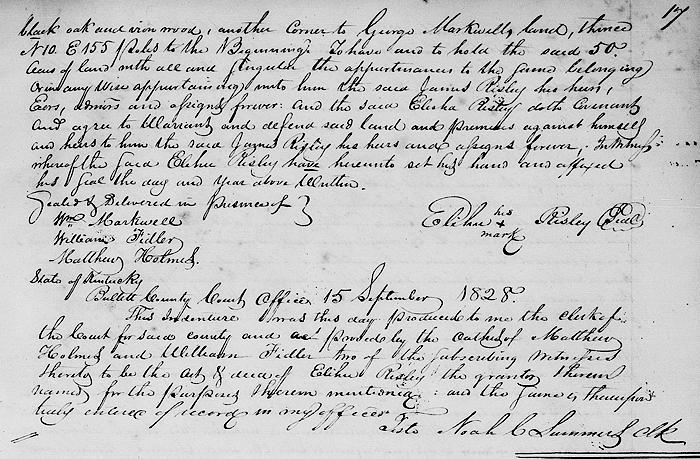 17
black oak and iron wood, another corner to George Markwells land, thence
N 10. E 155 poles to the Beginning. To have and to hold the said 50
acres of land with all and singular the appurtenances to the same belonging
or in any wise appurtaining unto him the said James Risley his heirs,
Exrs, admrs and assigns forever: and the said Elihu Risley doth Covenant
and agree to Warrant and defend said land and premises against himself
and heirs to him the said James Risley his heirs and assigns forever, In Witness
whereof the said Elihu Risley have hereunto set his hand and affixed
his seal the day and year above Written.
Sealed & Delivered in presence of }
Wm Markwell
Elihu his + mark Risley Seal
William Fidler
Matthew Holmes.
State of Kentucky
Bullitt County Court Office 15 September 1828.
This Indenture was this day produced to me the clerk of
the Court for said county and proved by the oaths of Matthew
Holmes and William Fidler two of the subscribing witnesses
thereto to be the act & deed of Elihu Risley the grantor therein
named for the purposes therein mentioned: and the same is thereupon
truly entered of record in my office
Teste Noah C Summers Clk